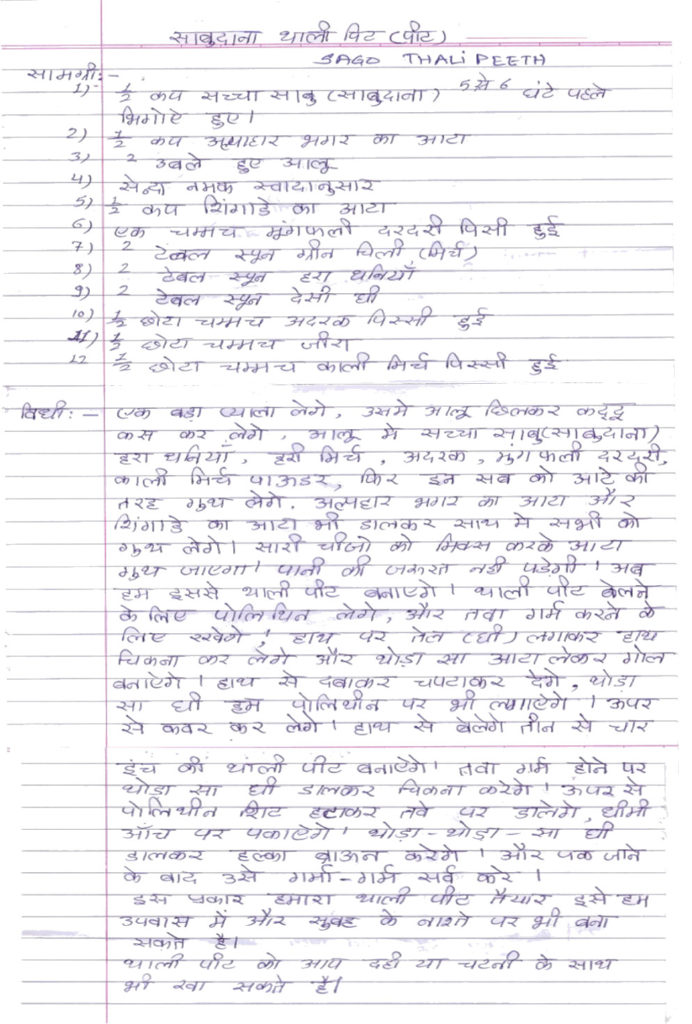 साबुदाना थाली पिट (पीट)
SAGO THALIPEETH
सामग्री:-
1)- ½ कप सच्चा साबु (साबुदाना) 5 से 6 घंटे पहले
भिगोऐ हुए।
2) ½ कप अल्पाहार भगर का आटा
3) 2 उबले हुए आलू
4) सेन्दा नमक स्वादानुसार
5) ½ कप शिंगाडे का आटा
6) एक चम्मच मूंगफली दरदरी पिसी हुई
7) 2 टेबल स्पून ग्रीन चिली (मिर्च)
8) 2 टेबल स्पून हरा धनियाँ
9) 2 टेबल स्पून देसी घी
10) ½ छोटा चम्मच अदरक पिस्सी हुई
11) ½ छोटा चम्मच जीरा
12 ½ छोटा चम्मच काली मिर्च पिस्सी हुई
विधी:- एक बड़ा प्याला लेगे, उसमे आलू छिलकर कद्दू
कस कर लेगे, आलू मे सच्चा साबु(साबुदाना)
हरा धनियाँ, हरी मिर्च, अदरक, मुंगफली दरदरी,
काली मिर्च पाऊडर, फिर इन सब को आटे की
तरह गुथ लेगे. अल्पहार भगर का आटा और
शिंगाडे का आटा भी डालकर साथ मे सभी को
गुथ लेगे। सारी चीजो को मिक्स करके आटा
गुथ जाएगा। पानी की जरूरत नही पडेगी। अब
हम इससे थाली पीट बनाएगे। थाली पीट बेलने
के लिए पोलिथिन लेगे, और तवा गर्म करने के
लिए रखेगे। हाथ पर तेल (घी) लगाकर हाथ
चिकना कर लेगे और थोड़ा सा आटा लेकर गोल
बनाऐगे। हाथ से दबाकर चपटाकर देगे, थोड़ा
सा घी हम पोलिथीन पर भी लगाऐगे। ऊपर
से कवर कर लेगे। हाथ से बेलेगे तीन से चार
इंच की थाली पीट बनाऐगे। तवा गर्म होने पर
थोडा सा घी डालकर चिकना करेगे। ऊपर से
पोलिथीन शिट हटाकर तवे पर डालेगे, धीमी
आँच पर पकाऐगे। थोड़ा-थोड़ा-सा घी
डालकर हल्का ब्राऊन करेगे। और पक जाने
के बाद उसे गर्मा-गर्म सर्व करे।
इस प्रकार हमारा थाली पीट तैयार इसे हम
उपवास में और सुबह के नाश्ते पर भी बना
सकते है।
थाली पीट को आप दही या चटनी के साथ
भी खा सकते है।